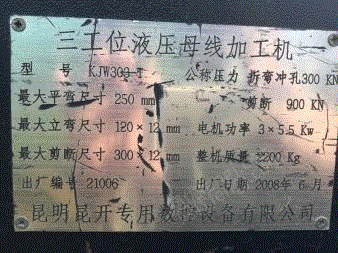 三工位液压母线加工机
型 号 KJW300-T 公称压力 折弯冲孔300 KN
最大平弯尺寸 250 mm 剪断 900 KN
最大立弯尺寸 120×12 mm 电机功率 3×5.5 Kw
最大剪断尺寸 300×12 mm 整机质量 2200 Kg
出厂编号 21006 出厂日期 2008年6月
昆明昆开专用数控设备有限公司